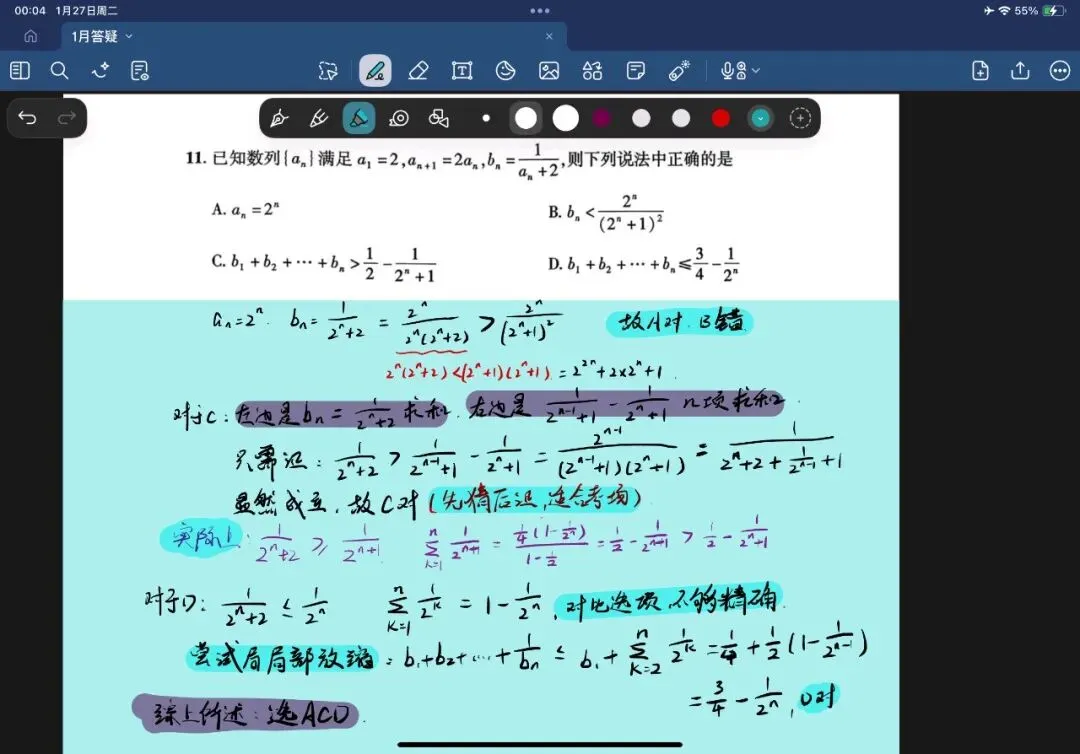 00:04 1月27日周二 55%
1月答疑
11. 已知数列{aₙ}满足 a₁=2,aₙ₊₁=2aₙ,bₙ=1/(aₙ+2),则下列说法中正确的是
A. aₙ=2ⁿ B. bₙ<2ⁿ/(2ⁿ+1)²
C. b₁+b₂+⋯+bₙ>1/2-1/(2ⁿ+1) D. b₁+b₂+⋯+bₙ≤3/4-1/2ⁿ
aₙ=2ⁿ. bₙ=1/(2ⁿ+2)=2ⁿ/(2ⁿ(2ⁿ+2))>2ⁿ/(2ⁿ+1)² 故A对.B错
2ⁿ(2ⁿ+2)<(2ⁿ+1)(2ⁿ+1).=2²ⁿ+2×2ⁿ+1.
对于C:左边是bₙ=1/(2ⁿ+2)求和.右边是1/(2ⁿ⁻¹+1)-1/(2ⁿ+1) n项求和.
只需证:1/(2ⁿ+2)>1/(2ⁿ⁻¹+1)-1/(2ⁿ+1)=2ⁿ⁻¹/((2ⁿ⁻¹+1)(2ⁿ+1))=1/(2ⁿ+2+1/(2ⁿ⁻¹)+1)
显然成立,故C对(先猜后证,适合考场)
实际上:1/(2ⁿ+2)≥1/2ⁿ⁺¹ ∑ₖ₌₁ⁿ 1/2ⁿ⁺¹=(1/4(1-1/2ⁿ))/(1-1/2)=1/2-1/2ⁿ⁺¹>1/2-1/(2ⁿ+1)
对于D:1/(2ⁿ+2)≤1/2ⁿ ∑ₖ₌₁ⁿ 1/2ᵏ=1-1/2ⁿ,对比选项不够精确.
尝试局局部放缩:b₁+b₂+⋯+1/bₙ≤b₁+∑ₖ₌₂ⁿ 1/2ᵏ=1/4+1/2(1-1/2ⁿ⁻¹)
=3/4-1/2ⁿ,D对
综上所述:选ACD.